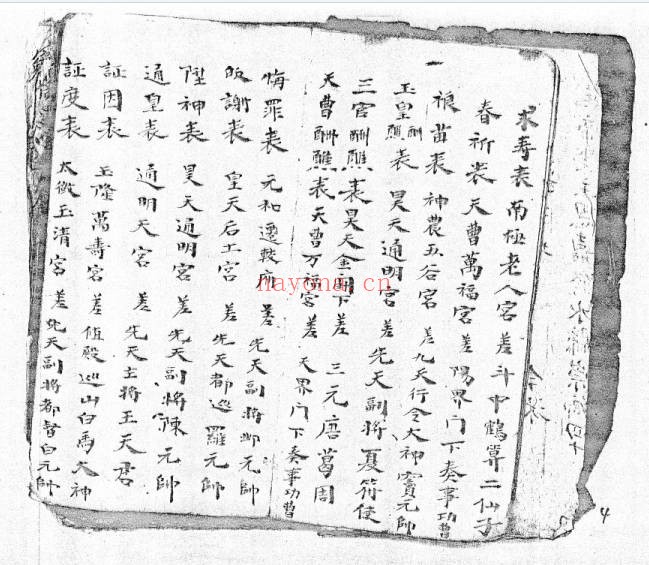 求寿表 南極老人宮 差 斗中鶴算二仙子
春祈表 天曹萬福宮 差 陽界門下奏事功曹
禳苗表 神農五谷宮 差 九天行令大神竇元帥
玉皇酬醮表 昊天通明宮 差 先天副將夏符使
三官酬醮表 昊天金闕下 差 三元唐葛周
天曹酬醮表 天曹万福宮 差 天界門下奏事功曹
悔罪表 元和遷教府 差 先天副將鄧元帥
皈謝表 皇天后土宮 差 先天都巡羅元帥
陞神表 昊天通明宮 差 先天副將陳元帥
通皇表 通明天宮 差 先天主將王天君
証因表 玉隆萬寿宮 差 值殿巡山白馬大神
証度表 太微玉清宮 差 先天副將都督白元帥
nayona.cn
4